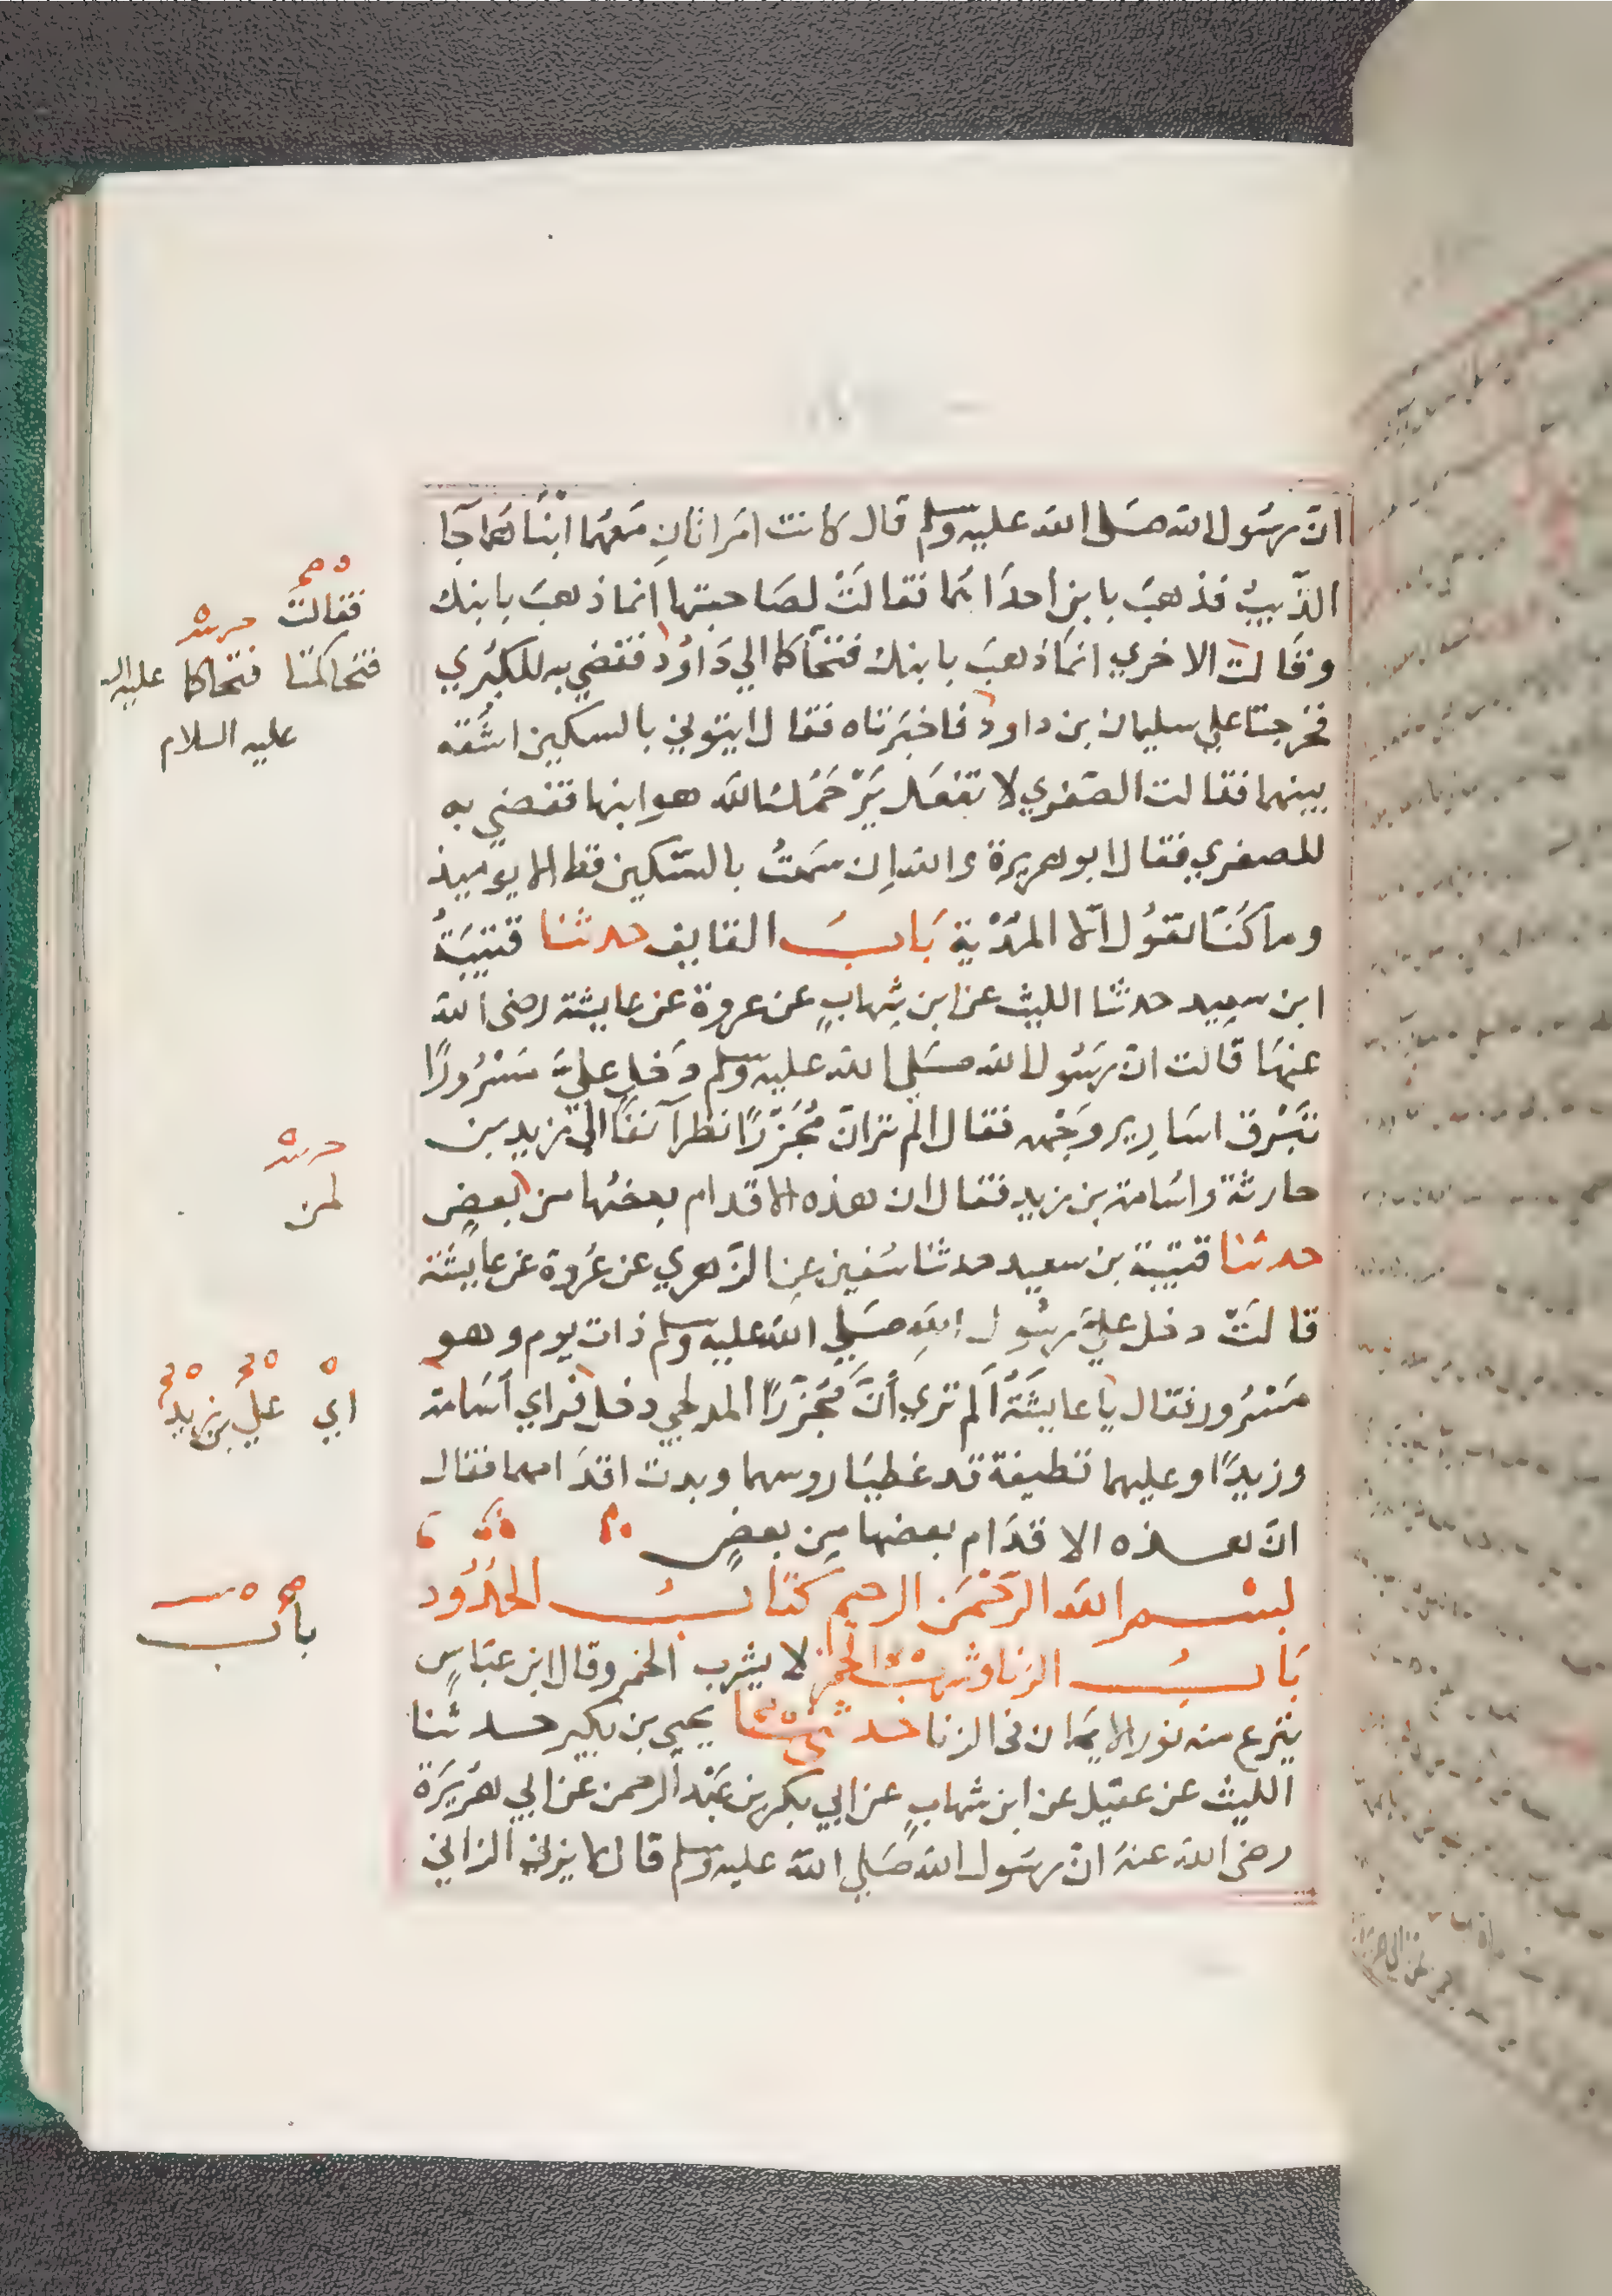 انّ رسُول الله صَلى الله عليه وسلم قال كانت امرَاتانِ مَعهُما ابْناهُما جَا
الذّيبُ فذهبَ بابن احدَاهُما فقالَتْ لصَاحبتها انما ذهبَ بابنك
وقَالت الاخري انمَا ذهبَ بابنك فتحَاكما الي دَاوُد فقضي به للكبُري
فخرجتا علي سليمان بن داود فاخبَرتاه فقال ايتوني بالسكين اشُقه
بينهما فقالت الصّغري لا تفعَل يَرْحَمُكَ الله هو ابنها فقضي به
للصغري فقال ابو هريرة والله اِن سَمعتُ بالسّكين قط الا يوميذ
وما كنّا نقوُل الّا المُدْية بَابُ القايف حدثنا قتيبَةُ
ابن سعيد حدثنا الليث عن ابن شِهابٍ عن عروة عن عايشة رضى الله
عنهَا قالت انّ رسَُول الله صَلي الله عليه وسلم دَخل عليَّ مَسْرُورًا
تبَْرق اسَارِير وَجْهه فقال الم تر انّ مُجَزّزًا نظر آنفًا الي زيد بن
حارثة واسَامة بن زيد فقال ان هذه الاقدام بعضُها من بعضٍ
حدثنا قتيبة بن سعيد حدثنا سُفين عن الزهري عن عُروة عن عايشة
قالَتْ دخل عليَّ رسُول الله صَلي الله عليه وسلم ذات يوم وهو
مَسْرُور فقال يا عايشَةُ اَلَم تري أنَّ مُجَزّزًا المدلجي دخل فراي أسَامة
وزيدًا وعليهما قطيفة قد غطيَا روسهما وبدت اقدَامهما فقال
انّ هذه الاقدَام بعضها مِن بعضٍ
بسْم الله الرَحْمَن الرحيم كتابُ الحُدُود
بَابُ الزنا وشُرب الخمر لا يشرب الخمر وقال ابن عبّاسٍ
ينزع منه نور الايمَان فى الزنا حدثنى يحيى بن بكير حدثنا
الليث عن عقيل عن ابن شهابٍ عن ابي بكر بن عَبْد الرحمن عن ابي هُرَيرَة
رضى الله عنهُ انّ رسَول الله صَلي الله عليه وسلم قال لا يزني الزاني
فقالتَ
فتحاكمتا فتحاكا
عليه السلام
لمن
اي علي بن يزيد
بابُ